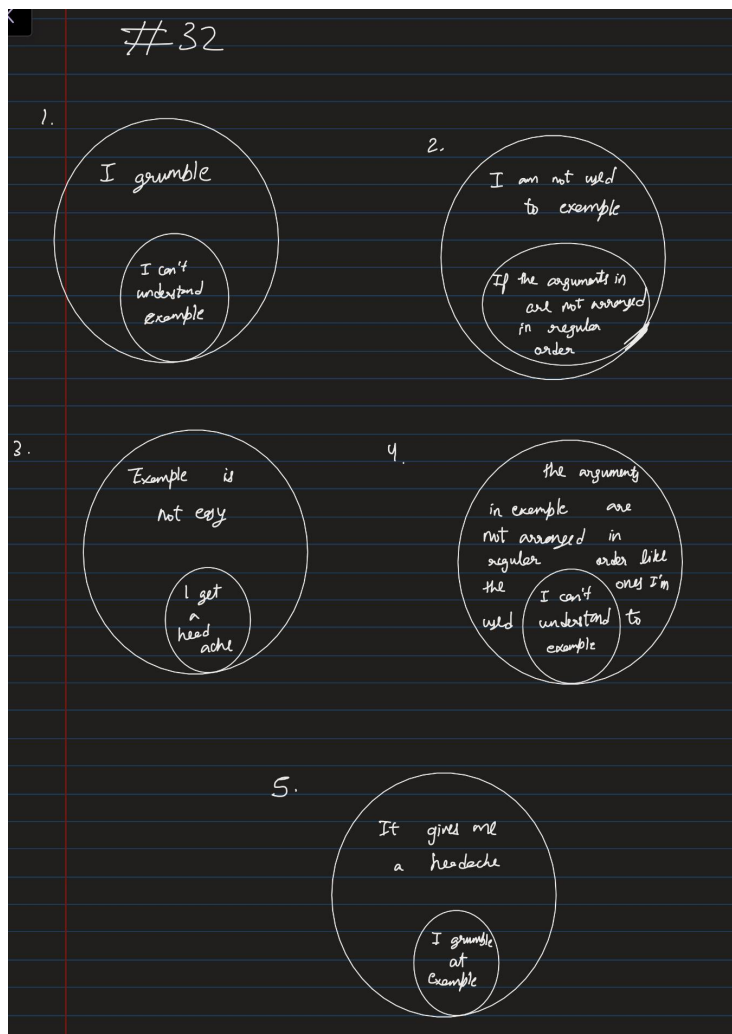 #32
1.
I grumble
I can't
understand
example
2.
I am not used
to example
If the arguments in
are not arranged
in regular
order
3.
Example is
not easy
I get
a
head
ache
4.
the arguments
in example are
not arranged in
regular order like
the ones I'm
used to
I can't
understand
example
5.
It gives me
a headache
I grumble
at
Example